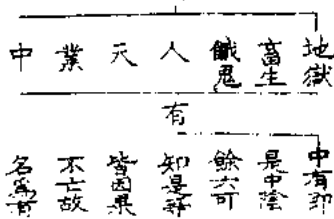 地獄
畜生
餓鬼
人
天
業
中
有
中有即
是中陰
餘六可
知是等
皆因果
不亡故
名為有